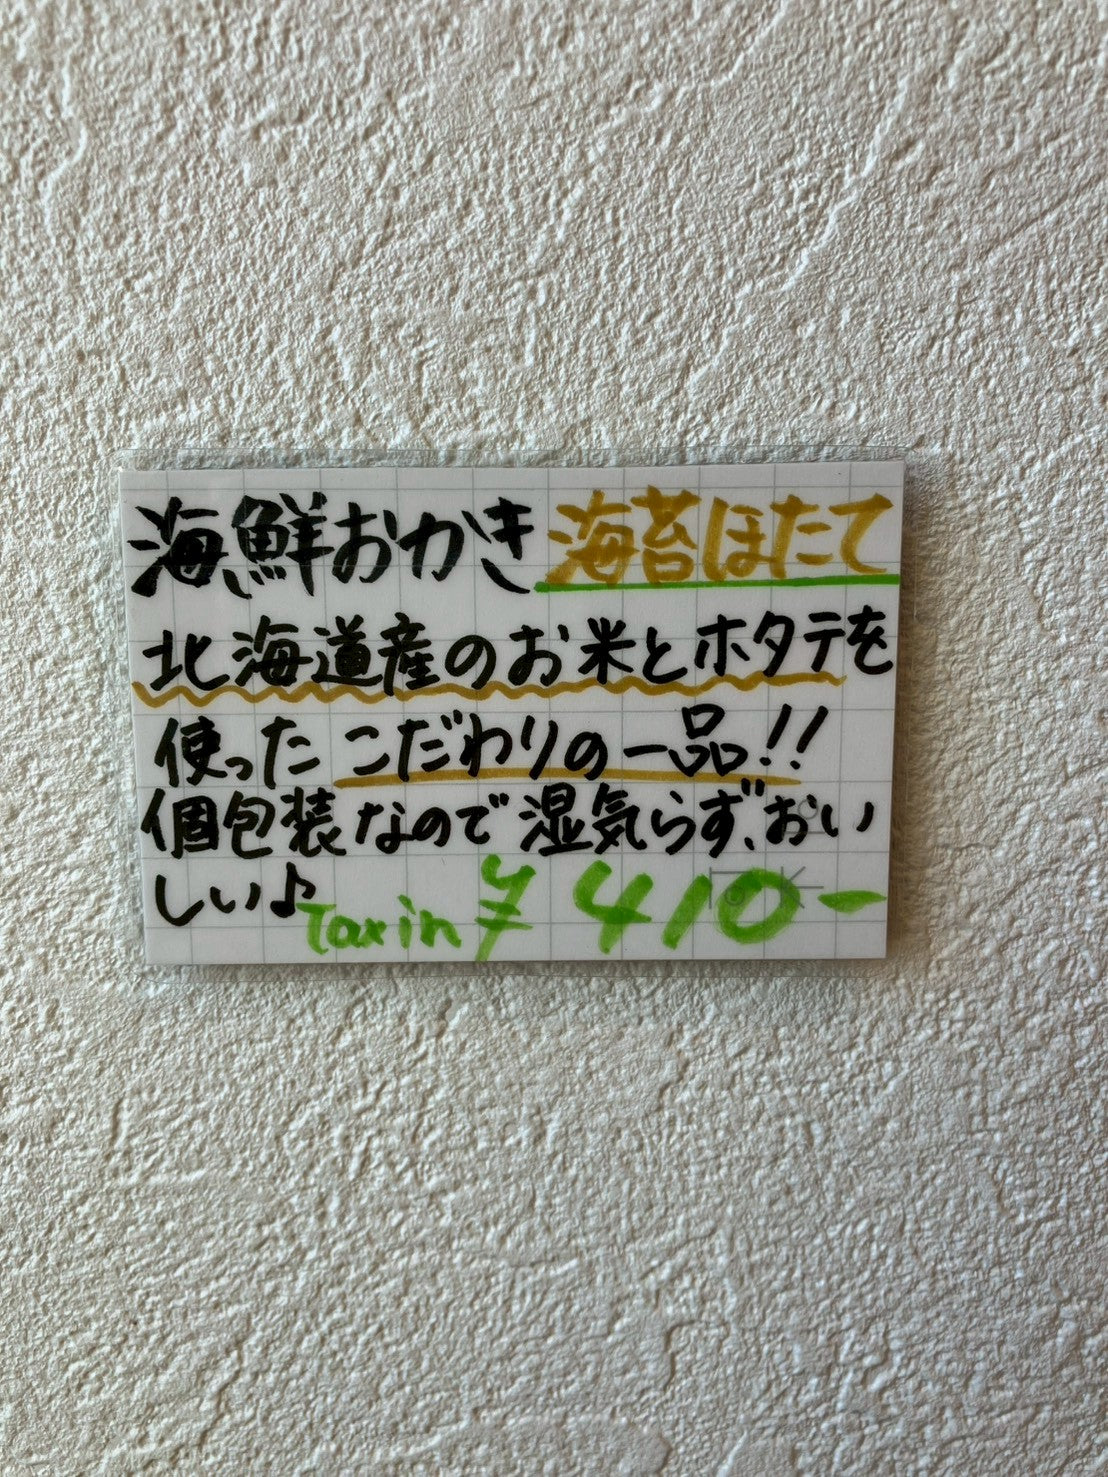 海鮮おかき 海苔ほたて
北海道産のお米とホタテを
使った こだわりの一品!!
個包装なので湿気らず、おい
しい♪ Tax in ¥410-